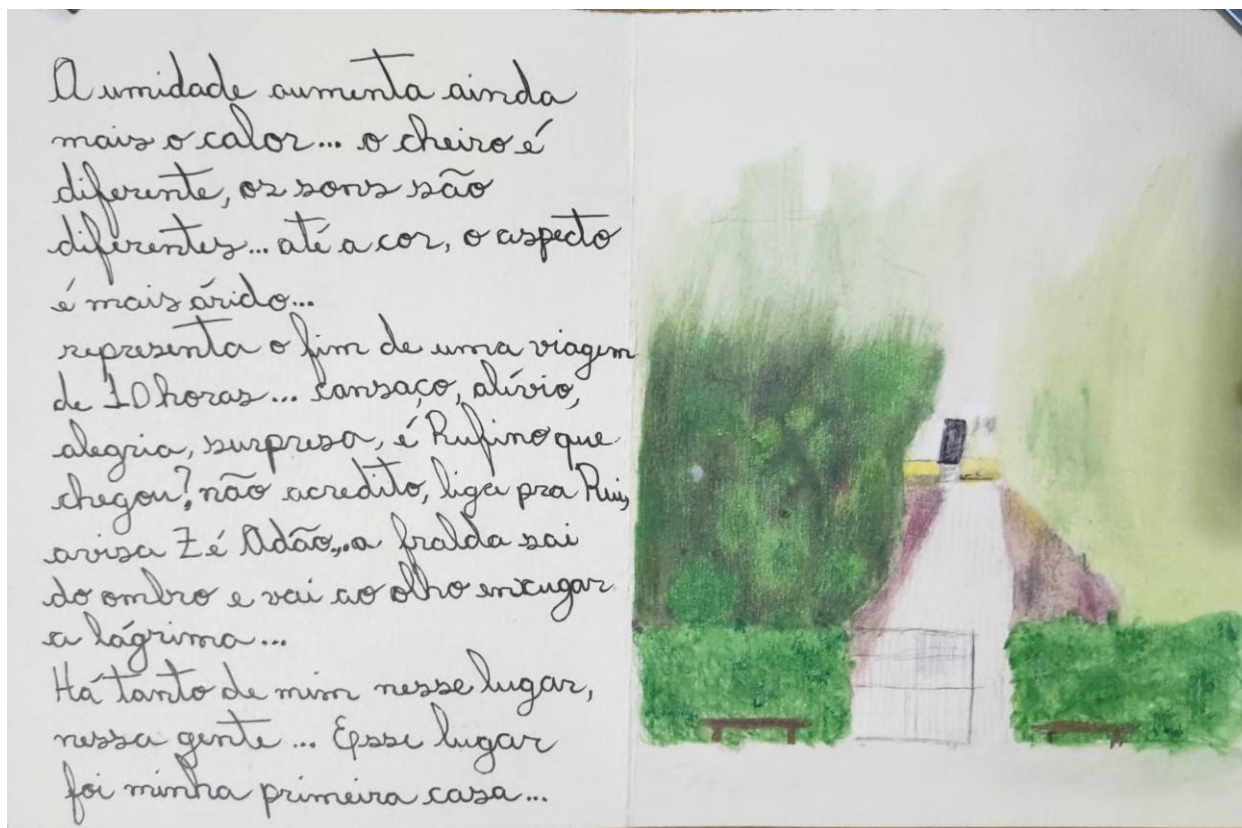 A umidade aumenta ainda
mais o calor... o cheiro é
diferente, os sons são
diferentes... até a cor, o aspecto
é mais árido...
representa o fim de uma viagem
de 10 horas... cansaço, alívio,
alegria, surpresa, é Rufino que
chegou? não acredito, liga pra Rui,
avisa Zé Adão,..a fralda sai
do ombro e vai ao olho enxugar
a lágrima...
Há tanto de mim nesse lugar,
nessa gente... Esse lugar
foi minha primeira casa...